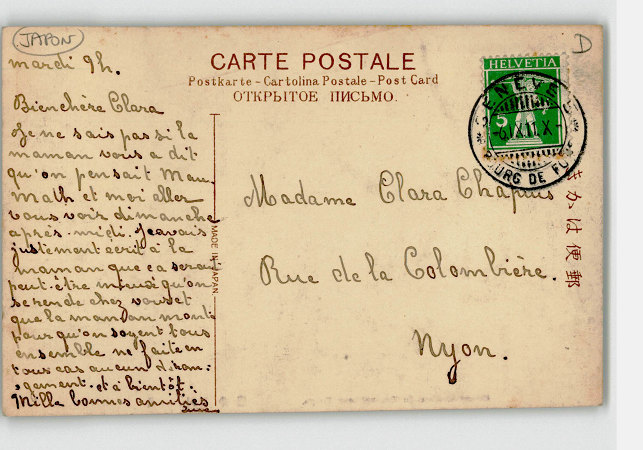 JAPON
D
mardi 9h.
CARTE POSTALE
Postkarte - Cartolina Postale - Post Card
ОТКРЫТОЕ ПИСЬМО.
HELVETIA
5
GENÈVE
-6.IX.11.X-
BOURG DE FOUR
Bien chère Clara
Je ne sais pas si la
maman vous a dit
qu'on pensait Mau.
Math et moi aller
vous voir dimanche
après-midi. J'avais
justement écrit à la
maman que ça serait
peut-être mieux qu'on
se rende chez vous et
que la maman monte
pour qu'on soyent tous
ensemble ne faite en
tous cas aucun déran-
gement. et à bientôt.
Mille bonnes amitiés
Madame Clara Chapuis
Rue de la Colombière.
Nyon.
MADE IN JAPAN
きかは便郵